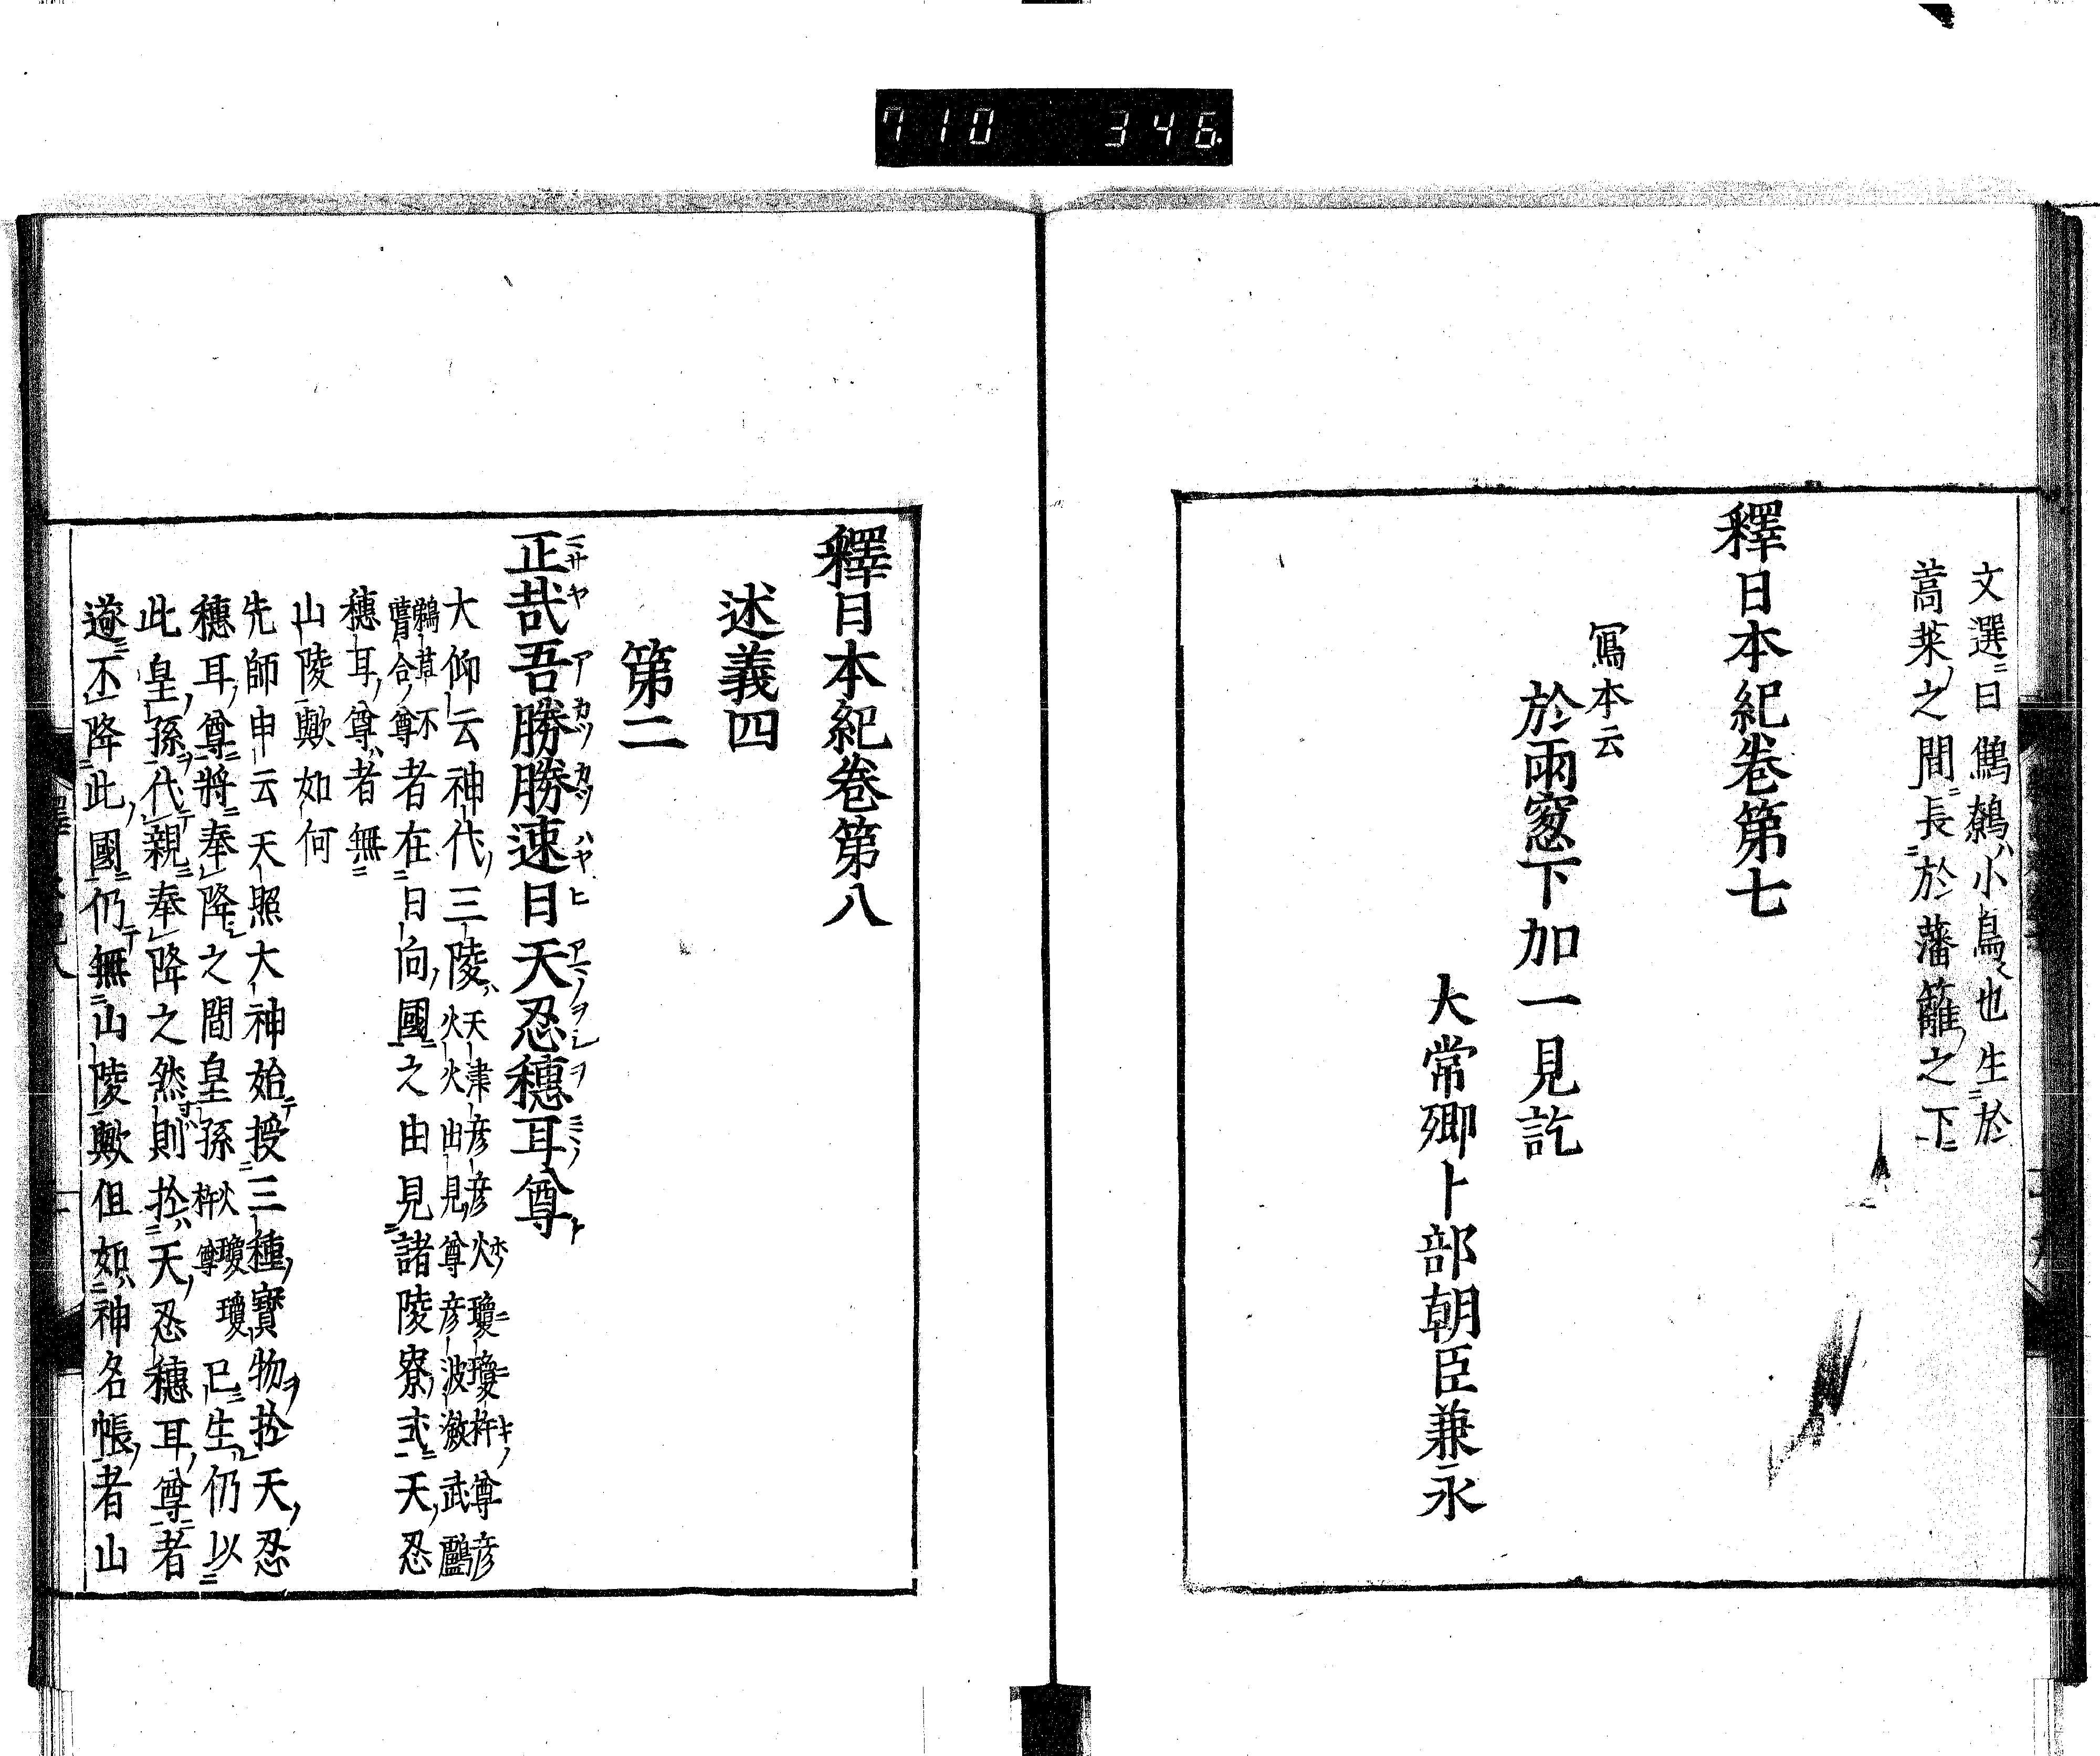 710 346
文選ニ曰鷦鷯ハ小鳥也生於
蒿萊之間長於藩籬之下
釋日本紀卷第七
寫本云
於雨窓下加一見訖
大常卿卜部朝臣兼永
釋日本紀卷第八
述義四
第二
正哉吾勝勝速日天忍穗耳尊
マサヤアカツカツハヤヒアマノヲシヲミミノ
大仰云神代三陵ハ天津彦彦火瓊瓊杵尊彦
火火出見尊彦波瀲武鸕
鷀草不
葺合尊者在日向國之由見諸陵寮式天忍
穗耳尊ハ者無
山陵歟如何
先師申云天照大神始授三種寶物於天忍
穗耳尊將奉降之間皇孫火瓊瓊杵尊已生仍以
此皇孫代親奉降之然則於天忍穗耳尊者
遂不降此國仍無山陵歟但如神名帳者山